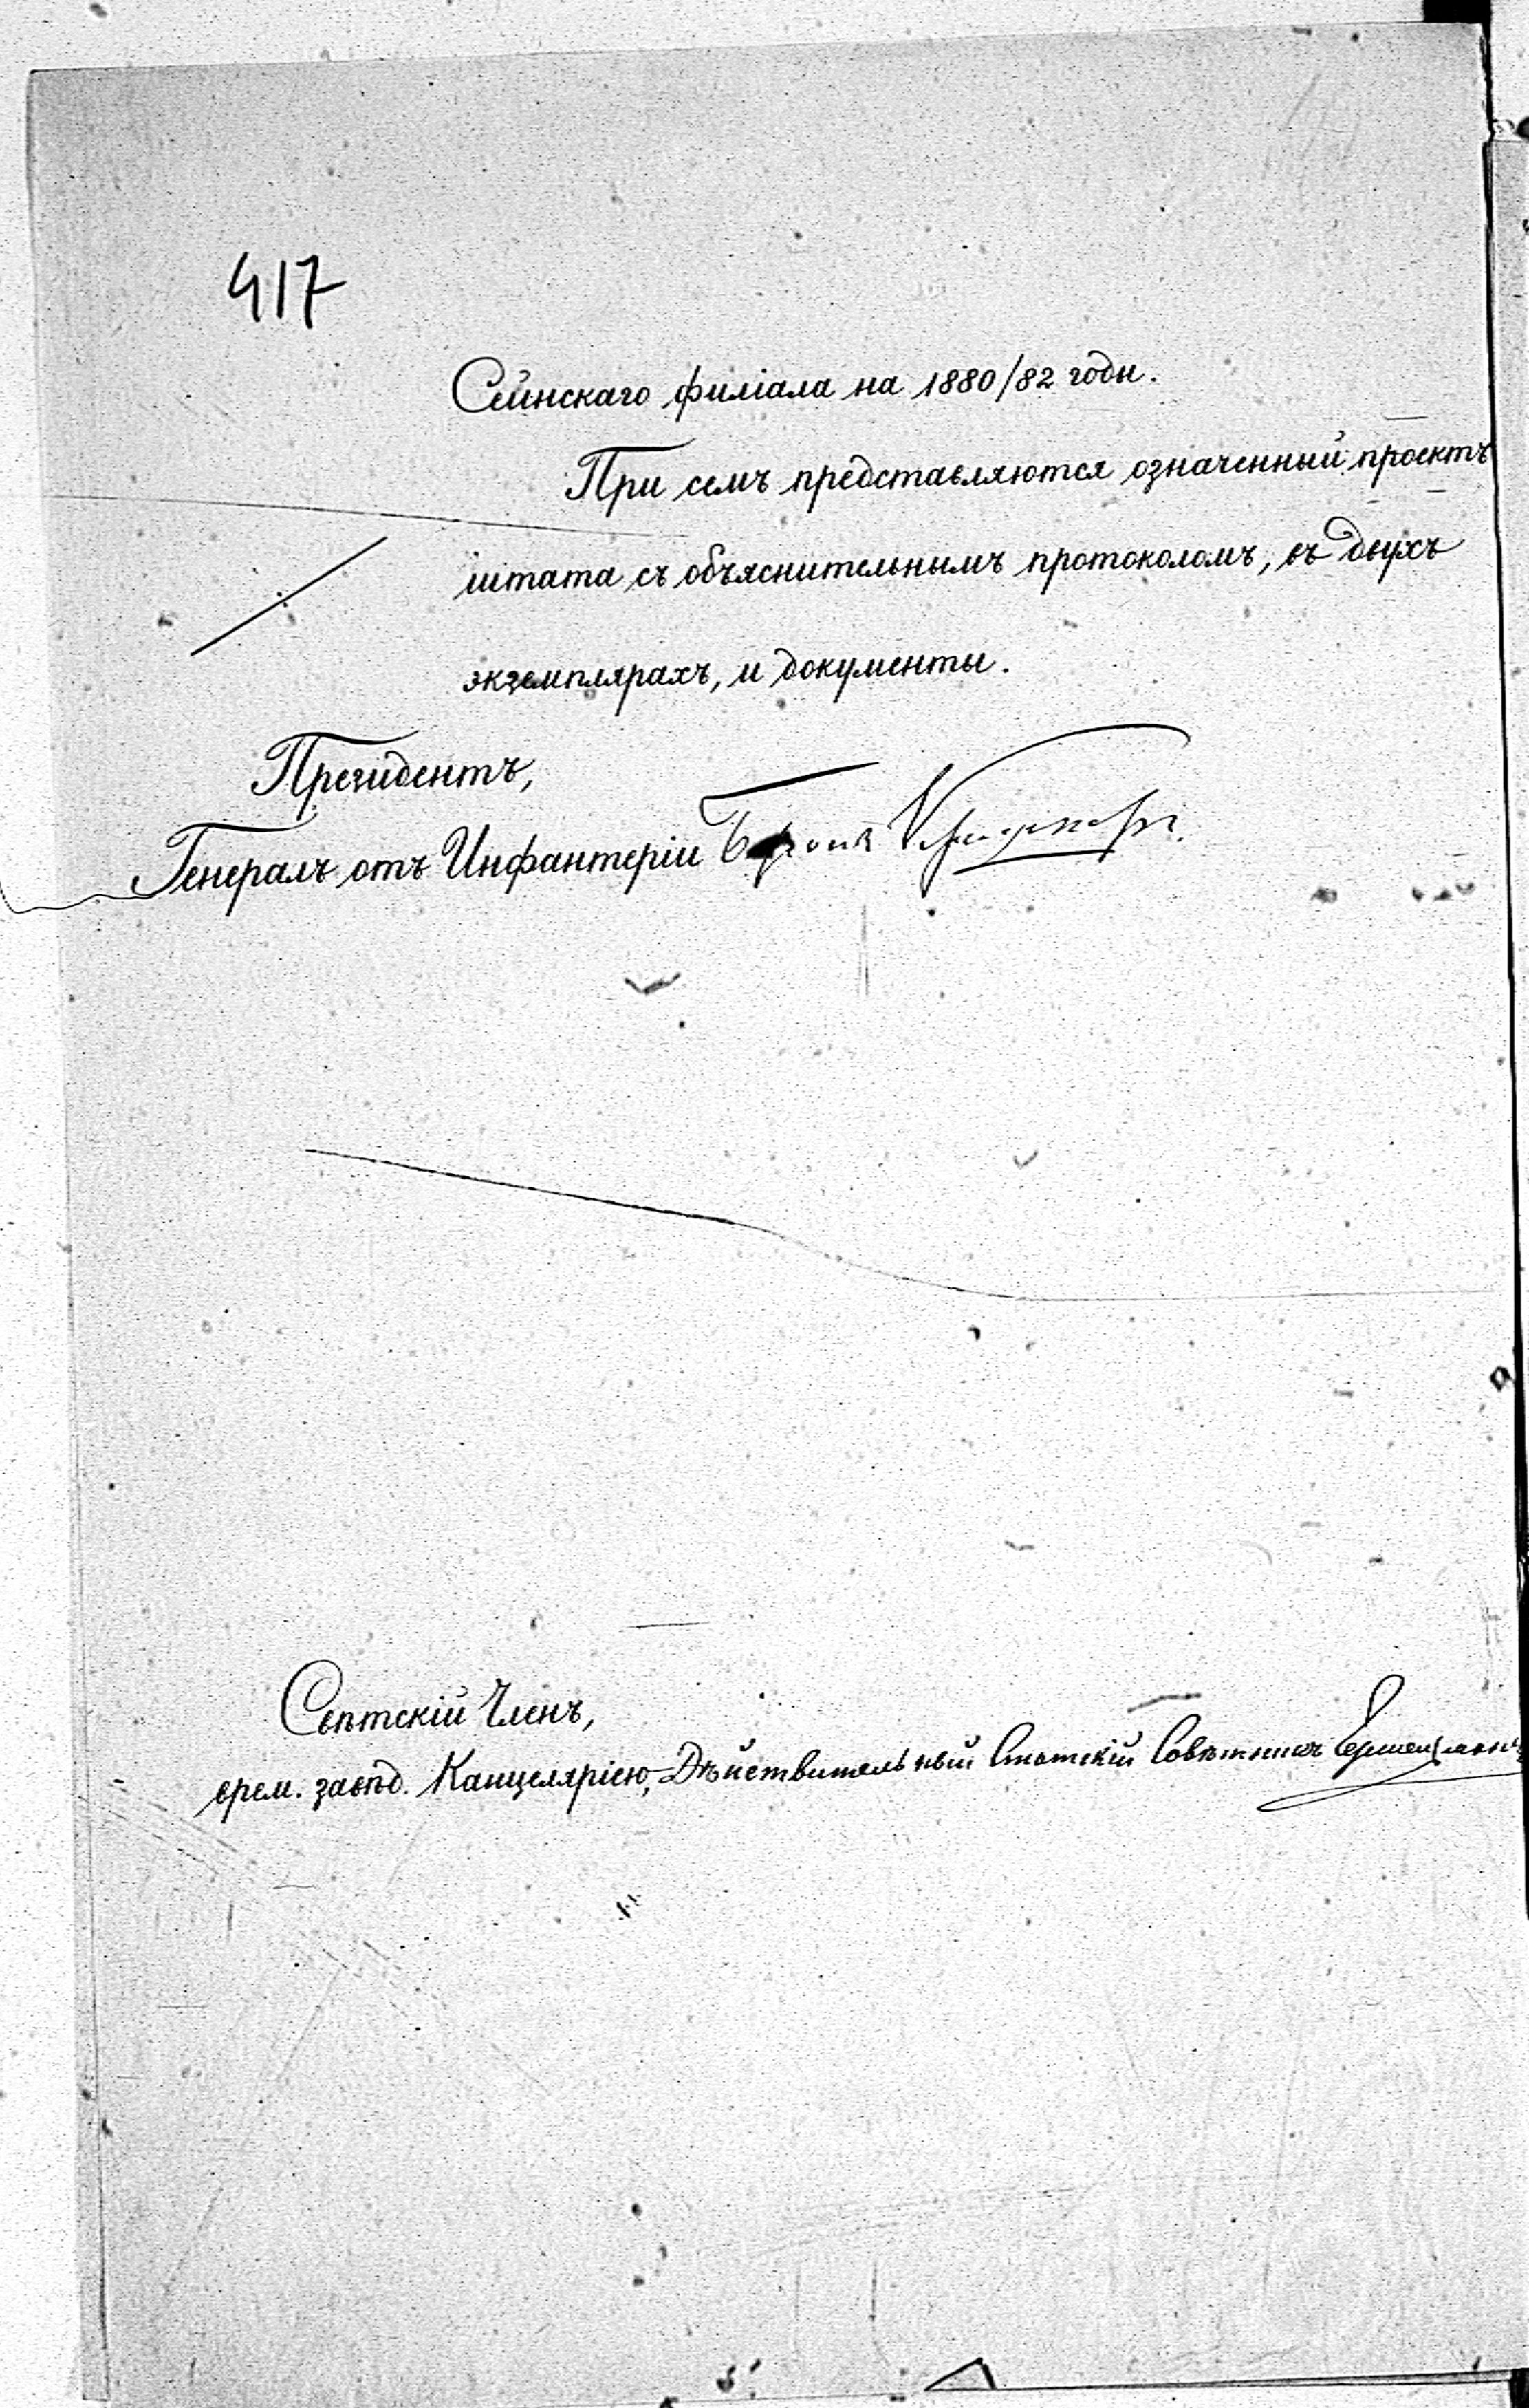 417
Сейнскаго филіала на 1880/82 годы.
При семъ представляются означенный проектъ
штата съ объяснительнымъ протоколомъ, въ двухъ
экземплярахъ, и документы.
Президентъ,
Генералъ отъ Инфантеріи Баронъ
Свѣтскій Членъ,
врем. завѣд. Канцеляріею, Дѣйствительный Статскій Совѣтникъ